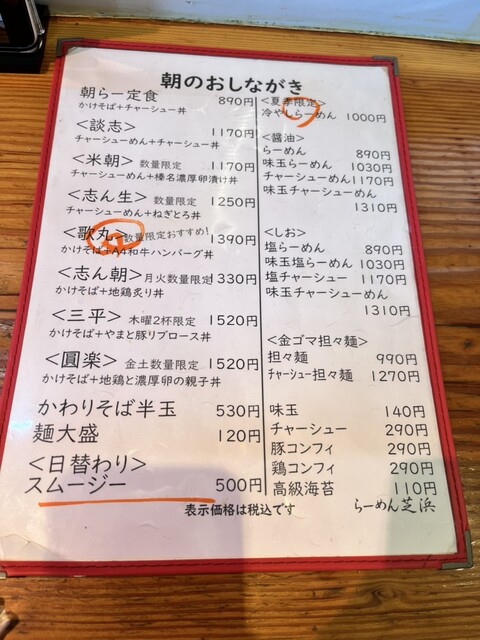 朝のおしながき
朝らー定食 890円
かけそば+チャーシュー丼
<談志> 1170円
チャーシューめん+チャーシュー丼
<米朝> 数量限定 1170円
チャーシューめん+榛名濃厚卵漬け丼
<志ん生> 数量限定 1250円
チャーシューめん+ねぎとろ丼
<歌丸> 数量限定おすすめ! 1390円
かけそば+A4和牛ハンバーグ丼
<志ん朝> 月火数量限定 1330円
かけそば+地鶏炙り丼
<三平> 木曜2杯限定 1520円
かけそば+やまと豚リブロース丼
<圓楽> 金土数量限定 1520円
かけそば+地鶏と濃厚卵の親子丼
かわりそば半玉 530円
麺大盛 120円
<日替わり>
スムージー 500円
<夏季限定>
冷やしらーめん 1000円
<醤油>
らーめん 890円
味玉らーめん 1030円
チャーシューめん 1170円
味玉チャーシューめん
1310円
<しお>
塩らーめん 890円
味玉塩らーめん 1030円
塩チャーシュー 1170円
味玉チャーシューめん
1310円
<金ゴマ担々麺>
担々麺 990円
チャーシュー担々麺 1270円
味玉 140円
チャーシュー 290円
豚コンフィ 290円
鶏コンフィ 290円
高級海苔 110円
表示価格は税込です
らーめん芝浜